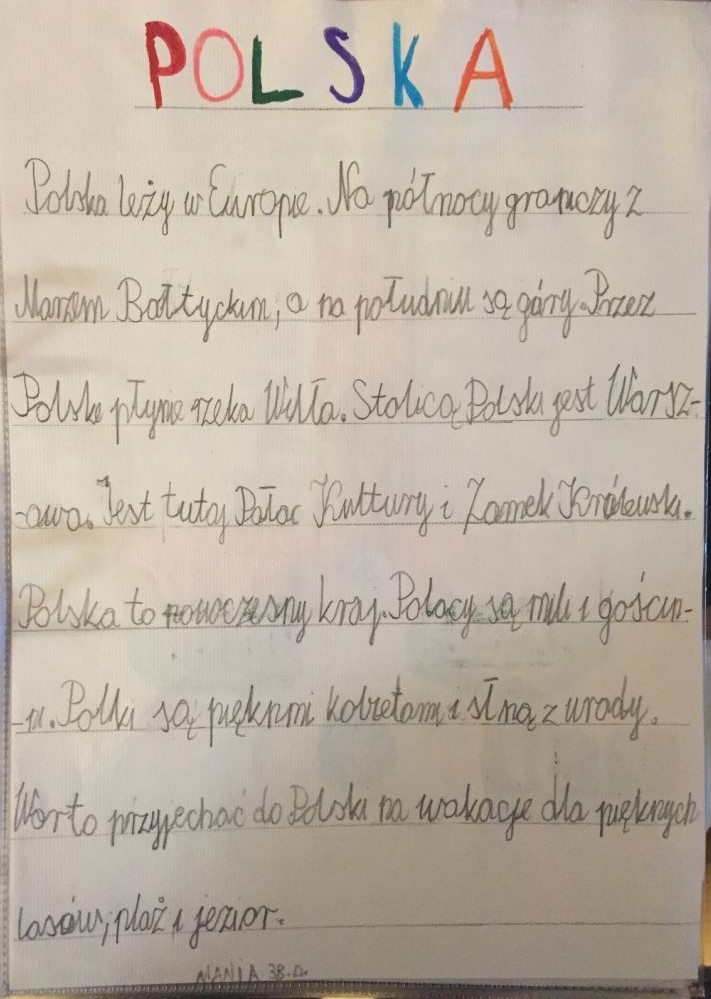 POLSKA
Polska leży w Europie. Na północy graniczy z
Morzem Bałtyckim, a na południu są góry. Przez
Polskę płynie rzeka Wisła. Stolicą Polski jest Warsz-
-awa. Jest tutaj Pałac Kultury i Zamek Królewski.
Polska to nowoczesny kraj. Polacy są mili i gościn-
-ni. Polki są pięknmi kobietami i słną z urody.
Warto przyjechać do Polski na wakacje dla pięknych
lasów, plaż i jezior.
MANIA 3B